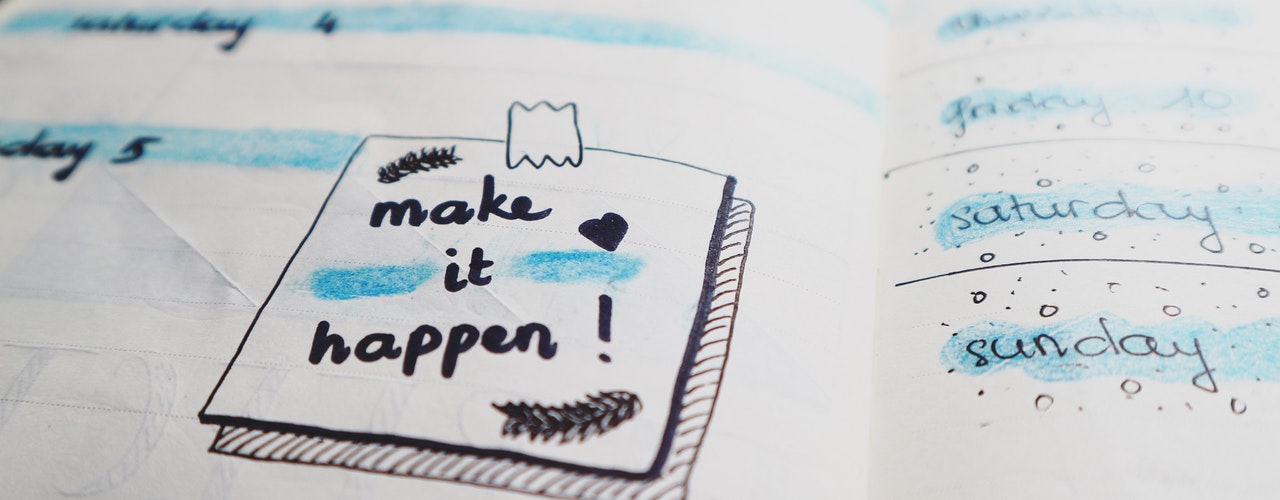 saturday 4
day 5
make
it
happen !
thursday
friday 10
saturday
sunday